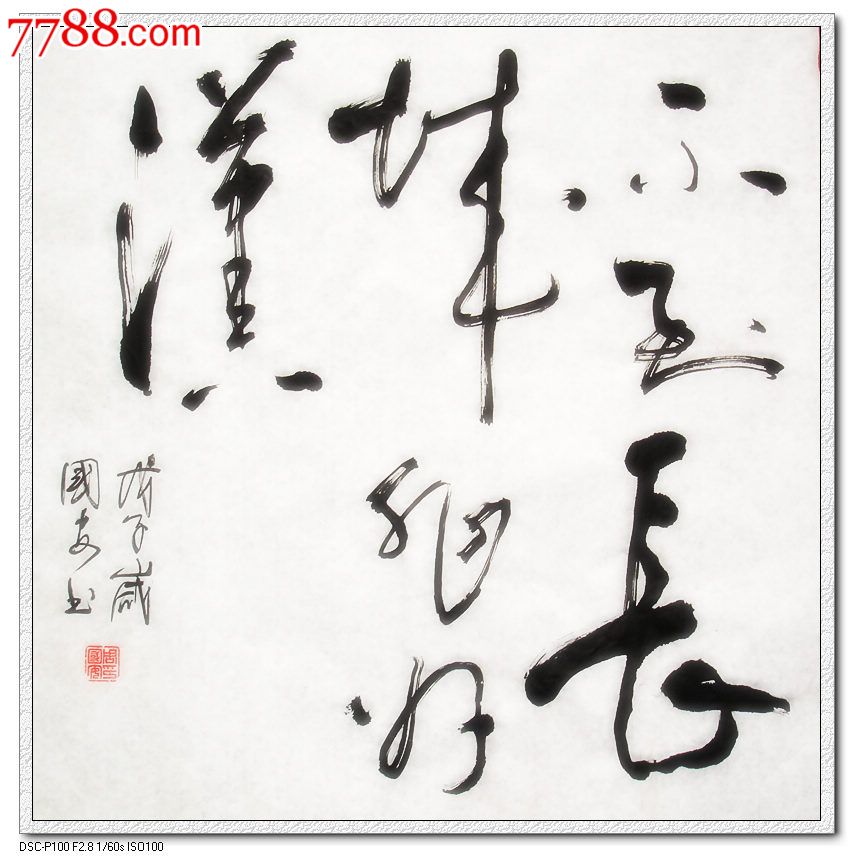 7788.com
不到长
城非好
漢
戊子歲
國安书
DSC-P100 F2.8 1/60s ISO100